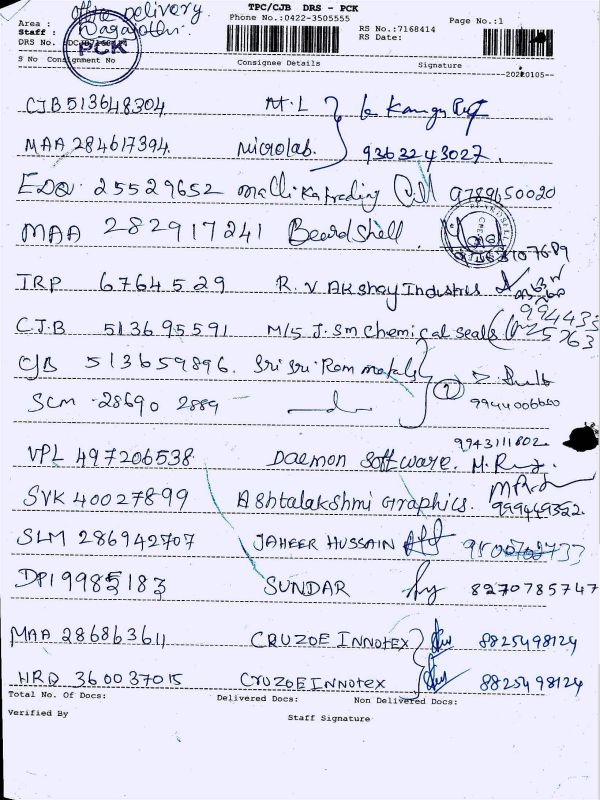 TPC/CJB DRS - PCK
office Delivery
Area :
Phone No.:0422-3505555
Page No.:1
Staff :
RS No.:7168414
DRS No.
RS Date:
PCK
S No Consignment No Consignee Details Signature
20220105--
CJB 513648304 M.L
MAA 284617394 Microlab. 9363243027.
EDQ 25529652 mallika trading 9789650020
MAA 282917241 Beardshell
IRP 6764529 R.V Akshay Industries
CJB 513695591 M/S J.Sm Chemical seals
CJB 513659896. Sri Sri Ram metals
SCM 28690 2889 9944006600
9943111802
VPL 497206538 Daemon Software.
SVK 40027899 Ashtalakshmi Graphics.
SLM 286942707 JAHEER HUSSAIN
DPI 9985183 SUNDAR 8270785747
MAA 286863611 CRUZOE INNOTEX 8825498124
HRD 360037015 CRUZOE INNOTEX 8825498124
Total No. Of Docs: Delivered Docs: Non Delivered Docs:
Verified By
Staff Signature